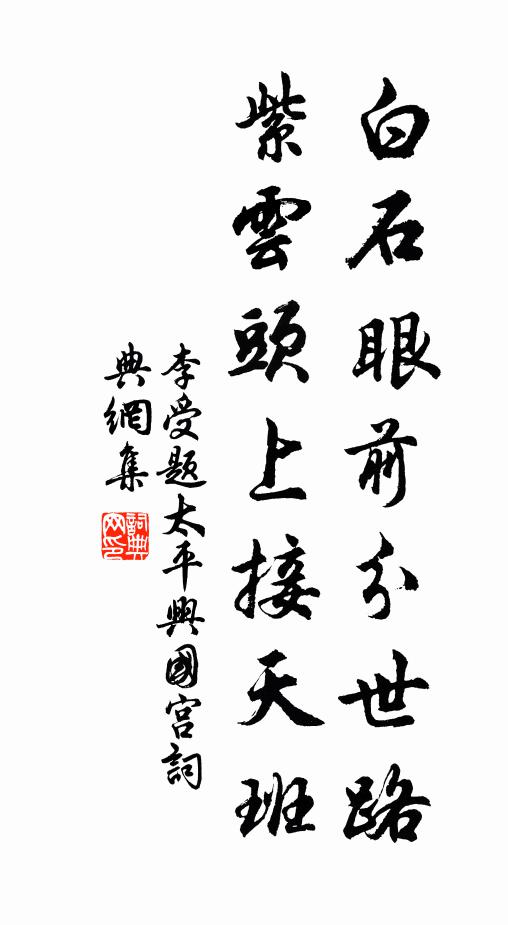 白石眼前分世路
紫雲頭上接天班
李受題太平興國宮詞
典網集
詞典網印